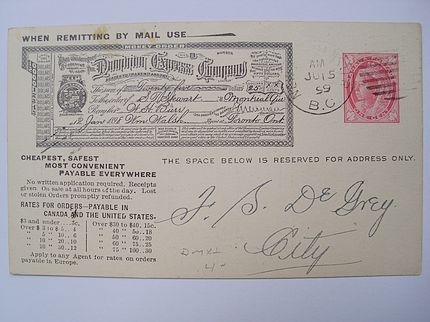 WHEN REMITTING BY MAIL USE
MONEY ORDER
Dominion Express Company
The sum of Twenty five Dollars
To the order of S. P. Stewart Montreal Que
Remitter
12 June 1898 Wm. Walsh Toronto Ont
AM
JU 15
99
B.C.
CHEAPEST, SAFEST
MOST CONVENIENT
PAYABLE EVERYWHERE
No written application required. Receipts
given. On sale at all hours of the day. Lost
or stolen Orders promptly refunded.
RATES FOR ORDERS—PAYABLE IN
CANADA AND THE UNITED STATES—
$3 and under ....3c.
Over $ 3 to $ 5.. 4
" 5 " 10.. 6
" 10 " 20..10
" 20 " 30..12
Over $30 to $40, 15c.
" 40 " 50..18
" 50 " 60..20
" 60 " 75..25
" 75 " 100..30
Apply to any Agent for rates on orders
payable in Europe.
THE SPACE BELOW IS RESERVED FOR ADDRESS ONLY.
F. S. De Grey.
City